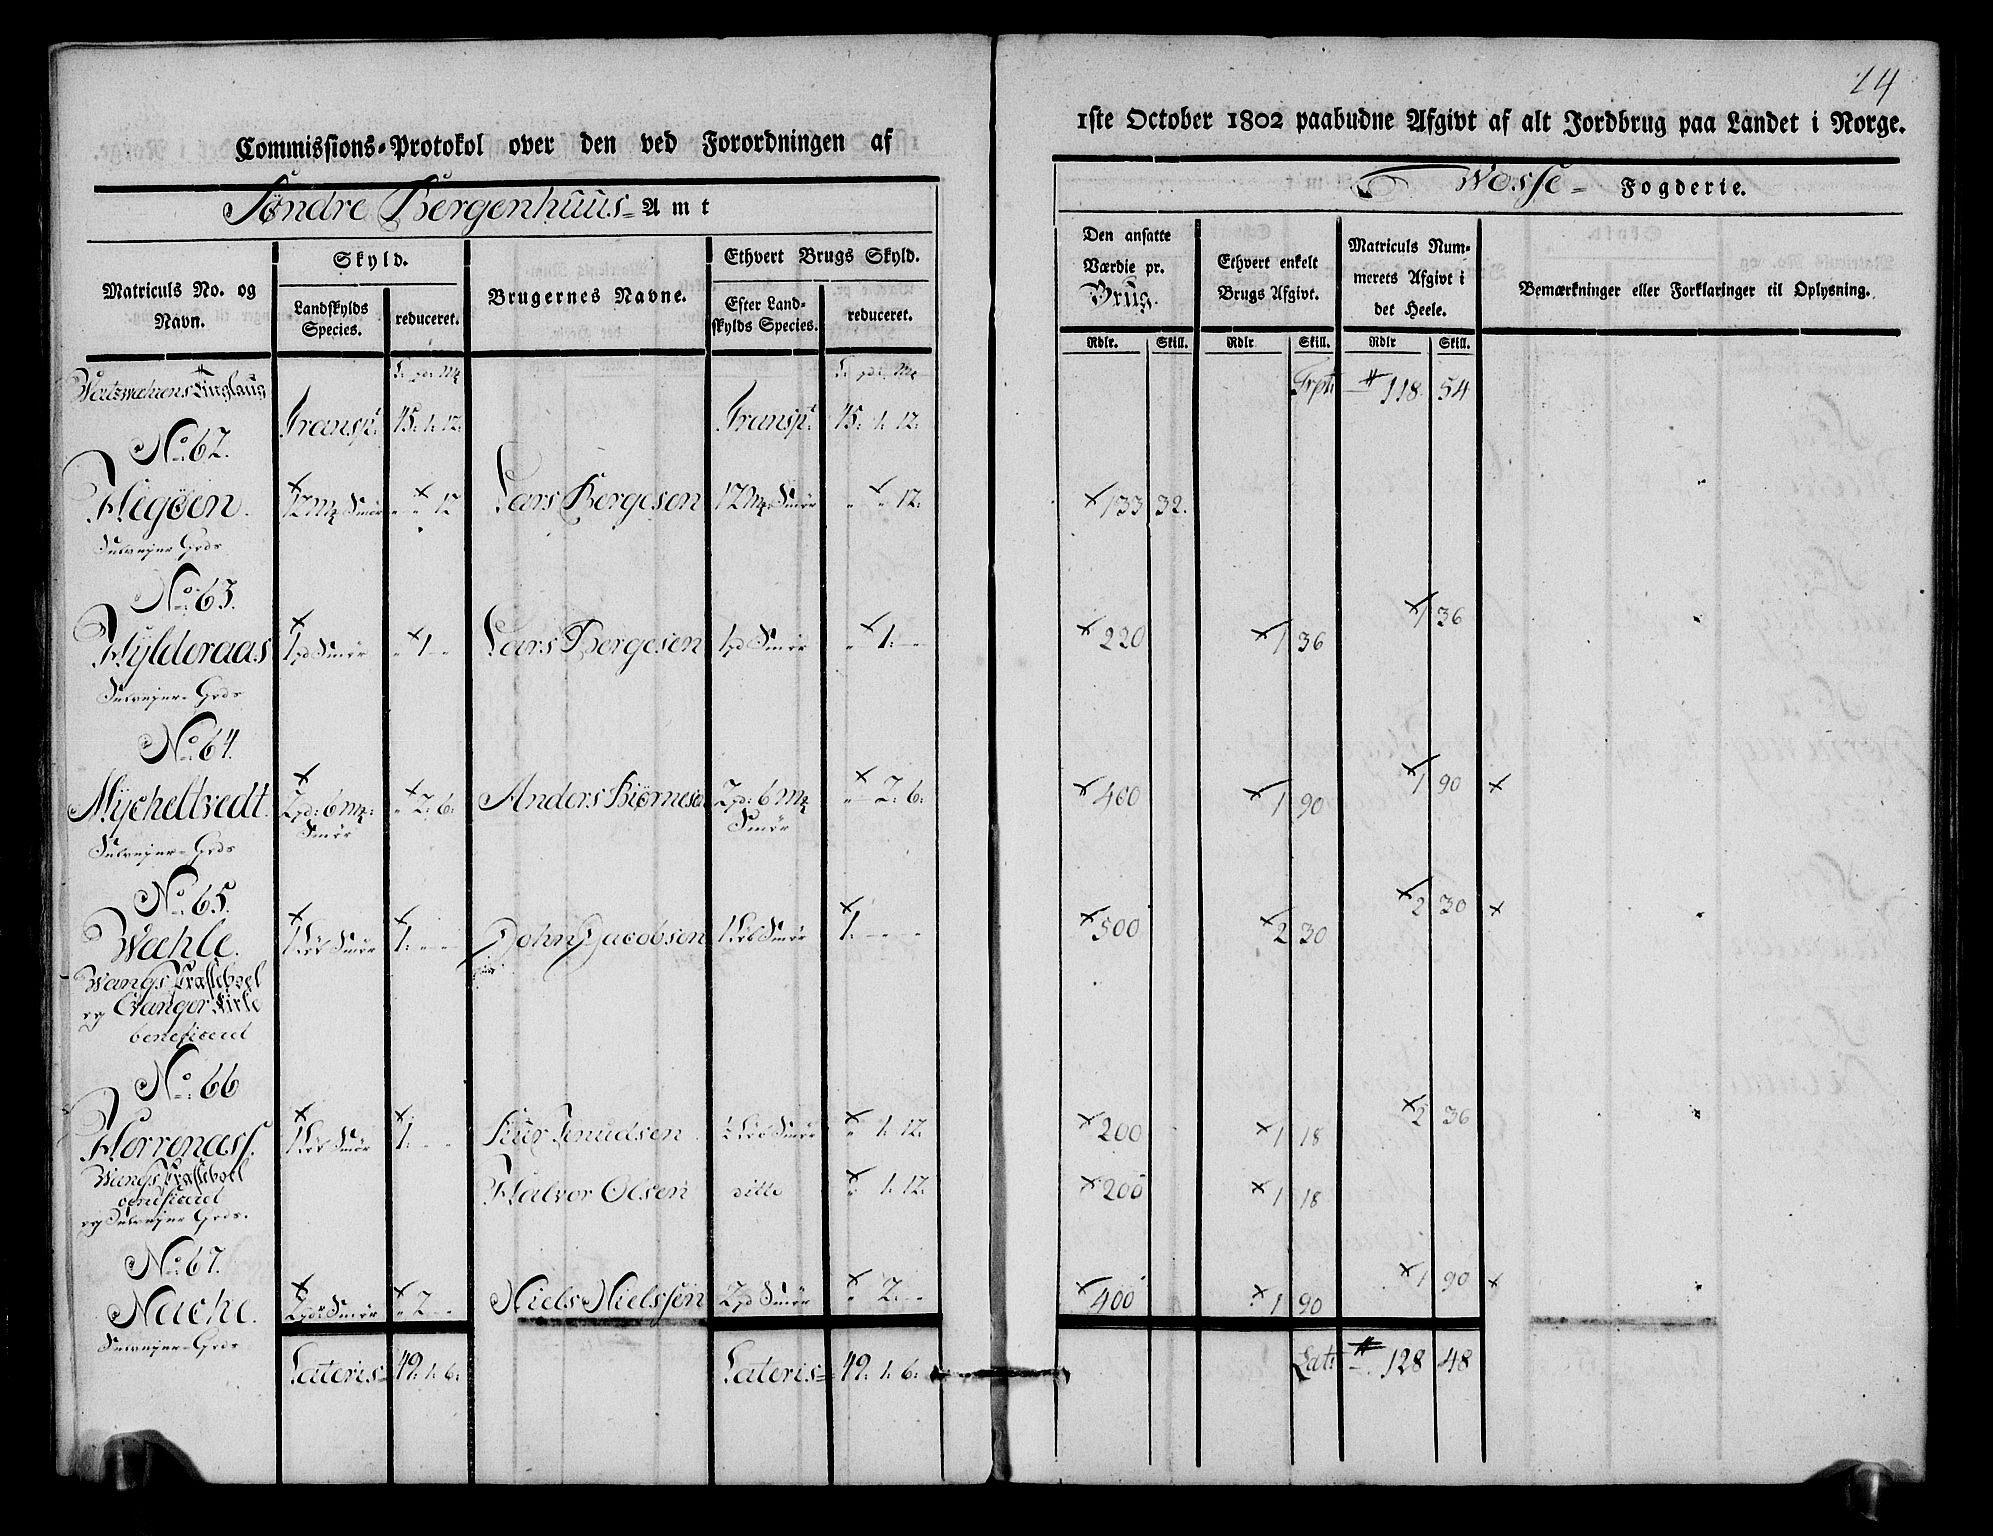 14
Commissions-Protokol over den ved Forordningen af
1ste October 1802 paabudne Afgivt af alt Jordbrug paa Landet i Norge.
Søndre Bergenhuus- Amt
Wosse- Fogderie.
Matriculs No. og Navn.
Skyld.
Landskylds Species.
reduceret.
Brugernes Navne.
Ethvert Brugs Skyld.
Efter Landskylds Species.
reduceret.
Den ansatte Værdie pr. Brug.
Ethvert enkelt Brugs Afgivt.
Matriculs Nummerets Afgivt i det Heele.
Bemærkninger eller Forklaringer til Oplysning.
Rdlr. Skill. Rdlr Skill. Rdlr Skill.
Transpt: 45. 1. 12. Transpt: 45. 1. 12. Trpt: 118 54
No. 62.
Hegøen. 12 Mk Smør " " 12 Lars Bergesen 12 Mk Smør " " 12. 133 32.
Selvejer Gods
No. 63.
Hylderaas 1 pd Smør " 1 " Lars Bergesen 1 pd Smør " 1. " 220 1 36 1 36
Selvejer-Gods
No. 64.
Mycheltvedt. 2 pd: 6 Mk: Smør " 2. 6. Anders Biørnesen 2 pd: 6 Mk Smør " 2. 6. 400 1 90 1 90
Selvejer-Gods
No. 65.
Wæhle. 1 Løb Smør 1. " " John Jacobsen 1 Løb Smør 1. " " 500 2 30 2 30
Wangs Præsteboel
og Evanger Kirke
beneficeret
No. 66
Horrenass. 1 Løb Smør 1. " " Siur Knudsen ½ Løb Smør " 1. 12. 200 1 18 2 36
Wangs Præsteboel
beneficeret
og Selvejer Gods.
Halvor Olsen ditto " 1. 12. 200 1 18
No. 67.
Næche. 2 pd: Smør " 2 " Niels Nielssøn 2 pd Smør " 2. " 400 1 90 1 90
Selvejer-Gods
Lateris- 49. 1. 6. Lateris- 49. 1. 6. Lat: 128 48